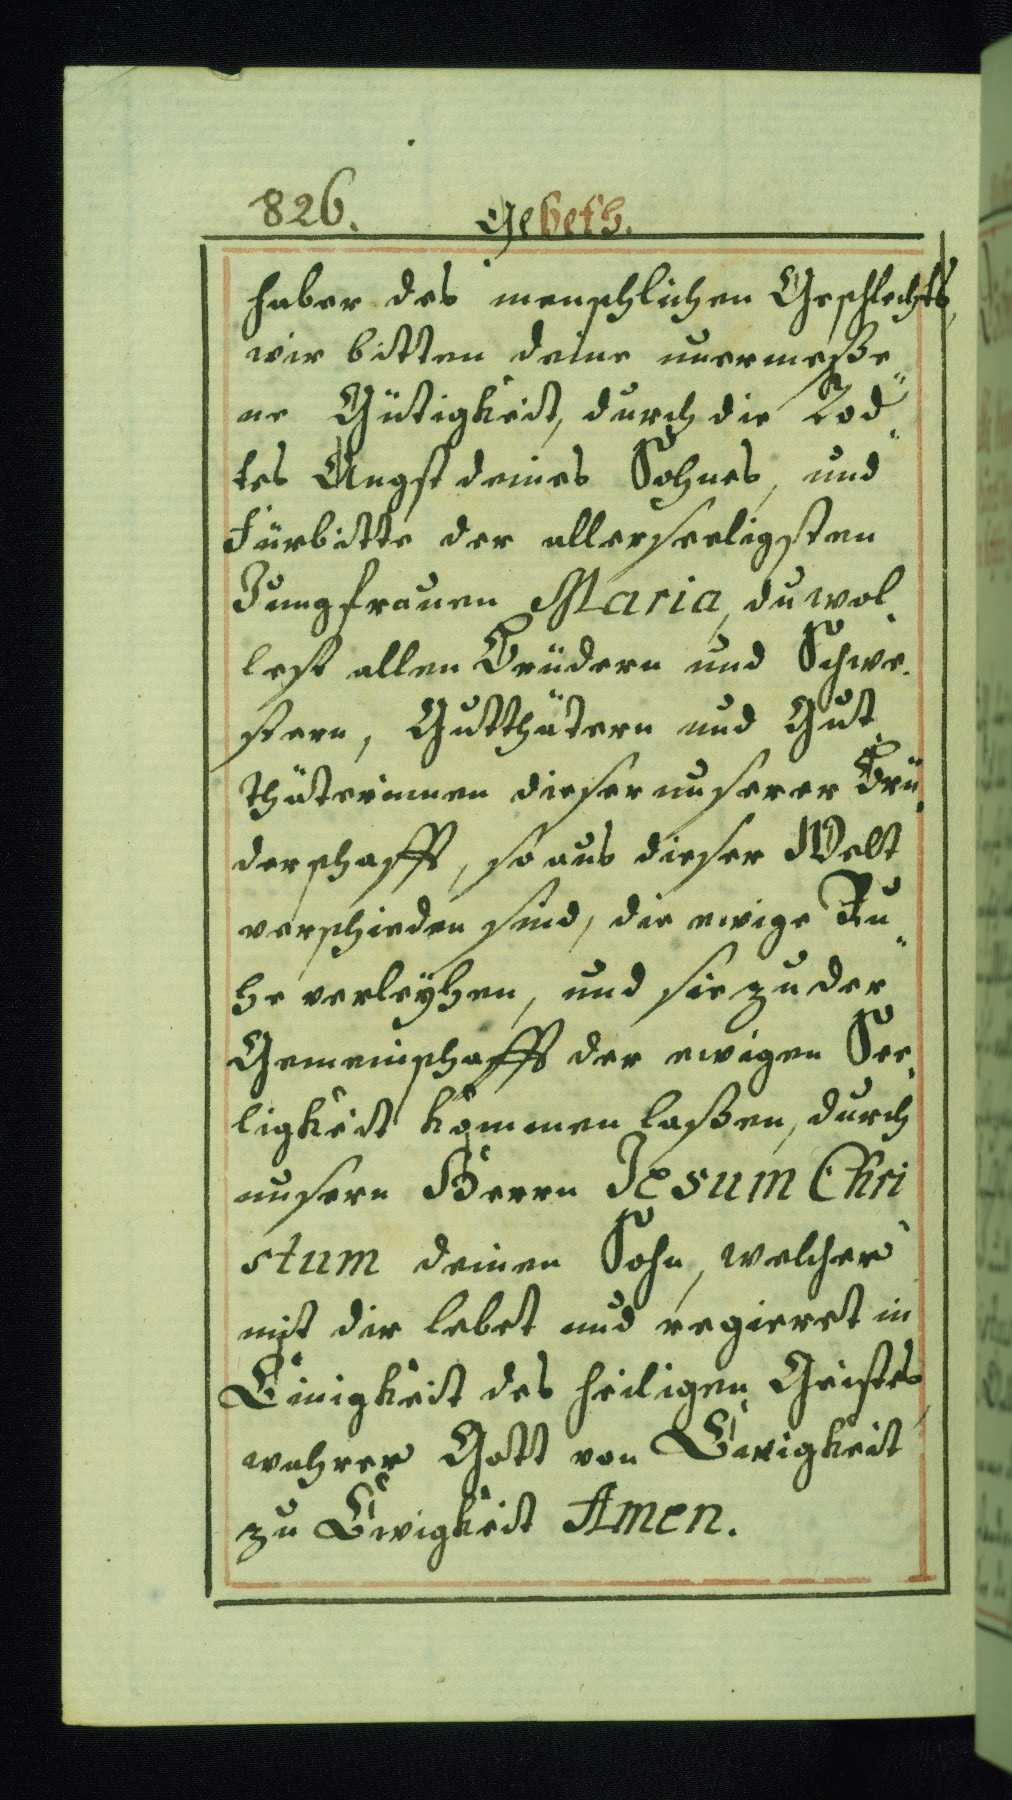 826. Gebeth.
haber des menschlichen Geschlechts,
wir bitten deine unermeße„
ne Gütigkeit, durch die Tod„
tes Angst deines Sohnes, und
Fürbitte der allerseeligsten
Jungfrauen Maria, du wol„
lest allen Brüdern und Schwe„
stern, Gutthätern und Gut„
thäterinnen dieser unserer Brü„
derschafft, so aus dieser Welt
verschieden sind, die ewige Ru„
he verleÿhen, und sie zu der
Gemeinschafft der ewigen See„
ligkeit kommen laßen, durch
unsern Herrn Jesum Chri
stum deinen Sohn, welcher
mit dir lebet und regieret in
Einigkeit des heiligen Geistes,
wahrer Gott von Ewigkeit
zu Ewigkeit Amen.